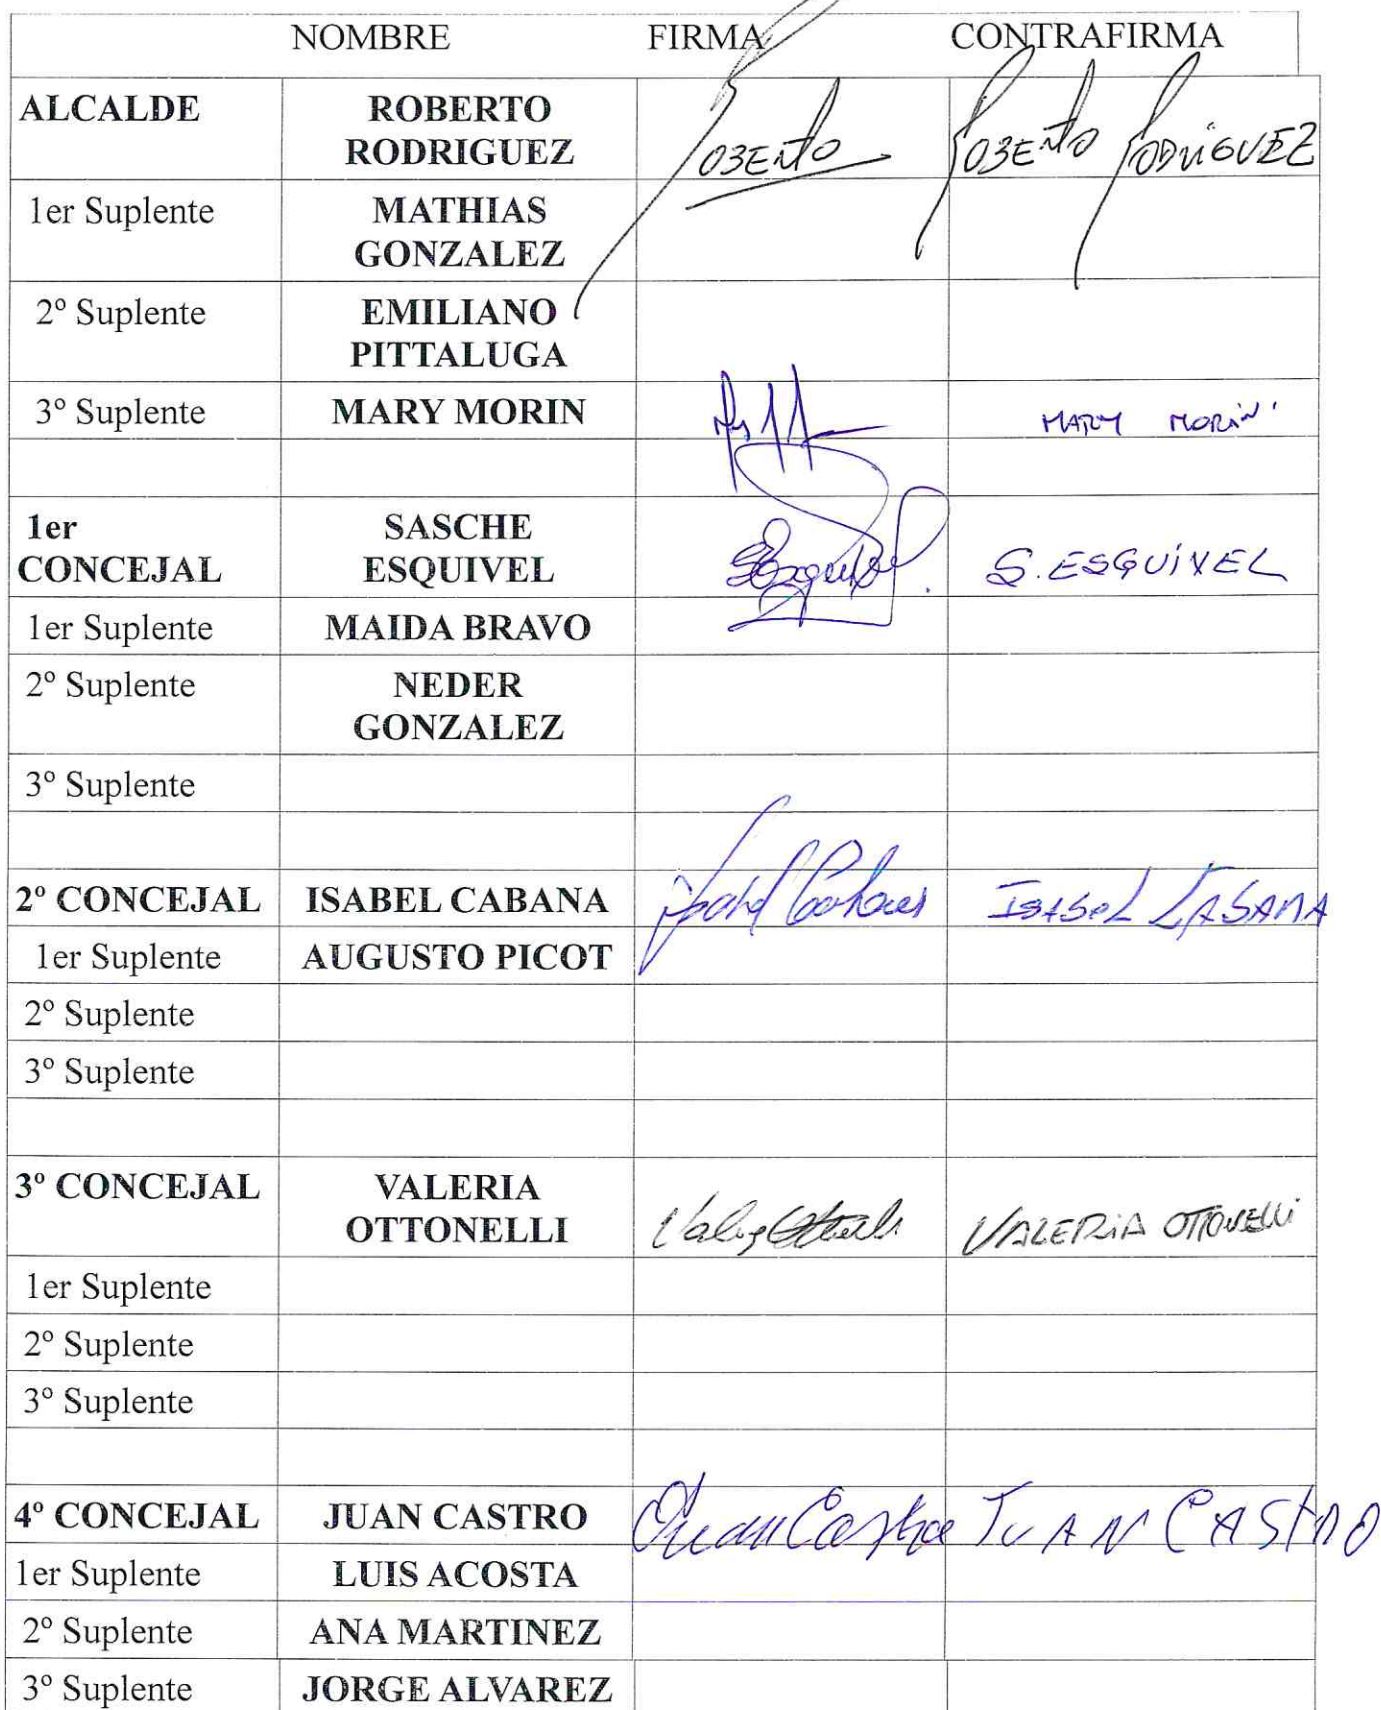 NOMBRE FIRMA CONTRAFIRMA
ALCALDE ROBERTO RODRIGUEZ Roberto Roberto Rodriguez
1er Suplente MATHIAS GONZALEZ
2º Suplente EMILIANO PITTALUGA
3º Suplente MARY MORIN MARY MORIN
1er CONCEJAL SASCHE ESQUIVEL SEsquivel S. ESQUIVEL
1er Suplente MAIDA BRAVO
2º Suplente NEDER GONZALEZ
3º Suplente
2º CONCEJAL ISABEL CABANA Isabel Cabana ISABEL CABANA
1er Suplente AUGUSTO PICOT
2º Suplente
3º Suplente
3º CONCEJAL VALERIA OTTONELLI VALERIA OTTONELLI
1er Suplente
2º Suplente
3º Suplente
4º CONCEJAL JUAN CASTRO Juan Castro JUAN CASTRO
1er Suplente LUIS ACOSTA
2º Suplente ANA MARTINEZ
3º Suplente JORGE ALVAREZ